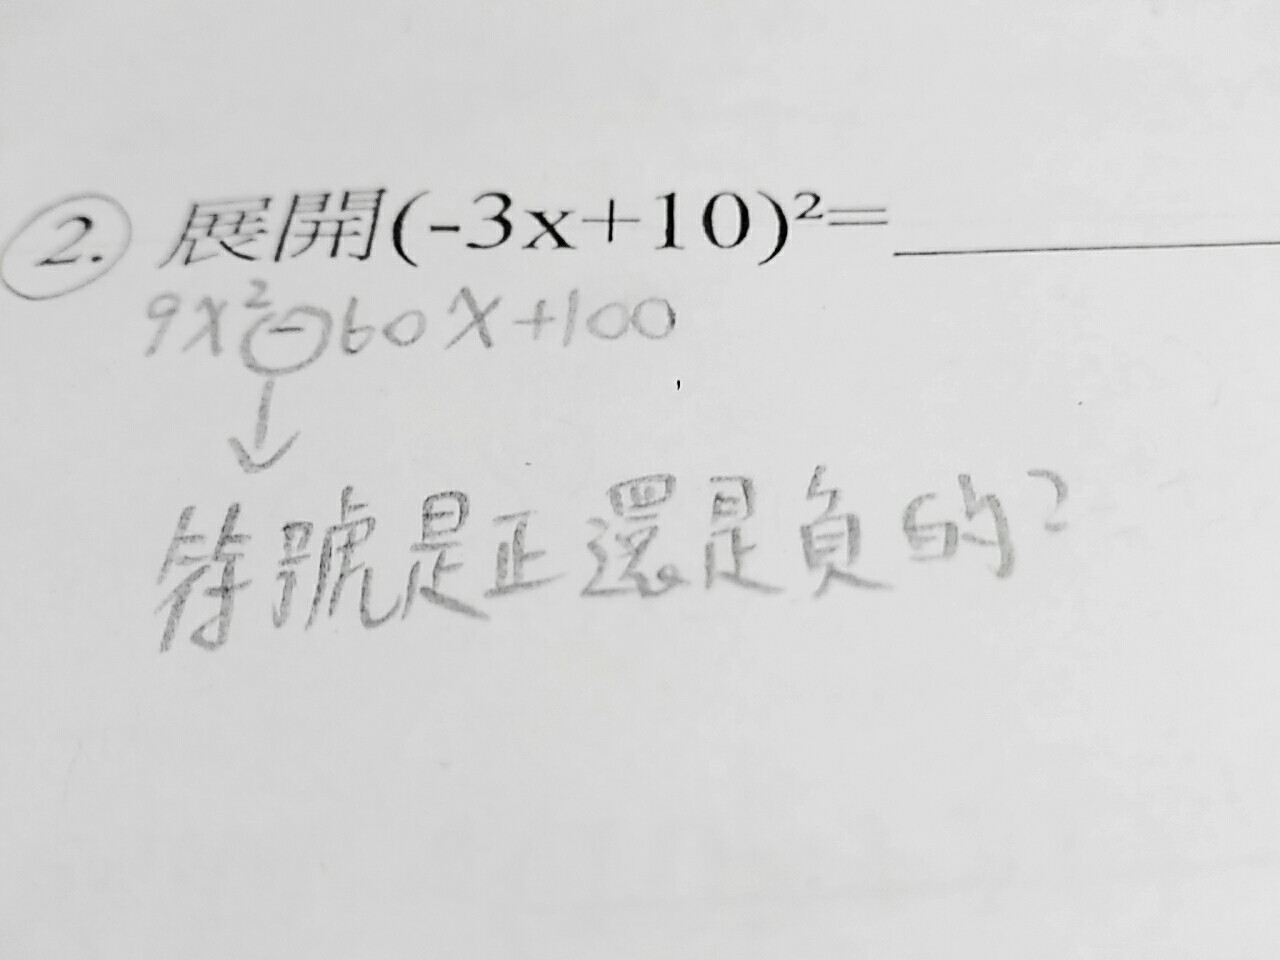 2. 展開(-3x+10)²=
9x²-60x+100
符號是正還是負的?